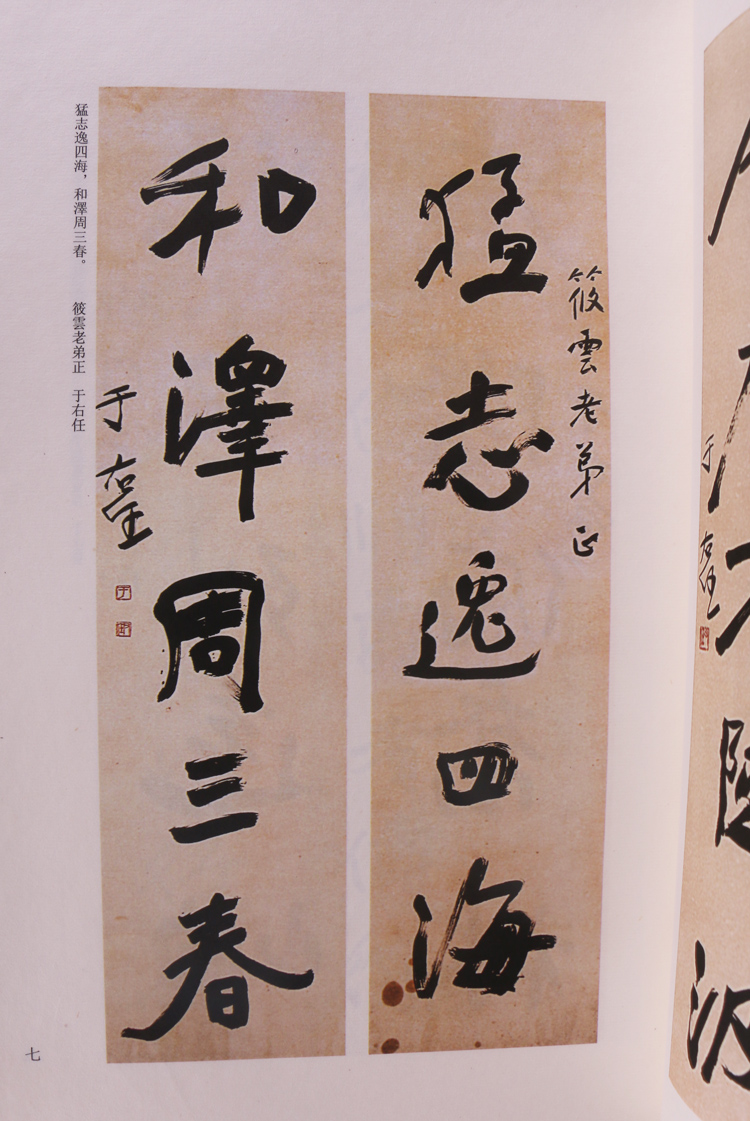 筱雲老弟正
猛志逸四海
和澤周三春
于右任
猛志逸四海，和澤周三春。 筱雲老弟正 于右任
七
于右任